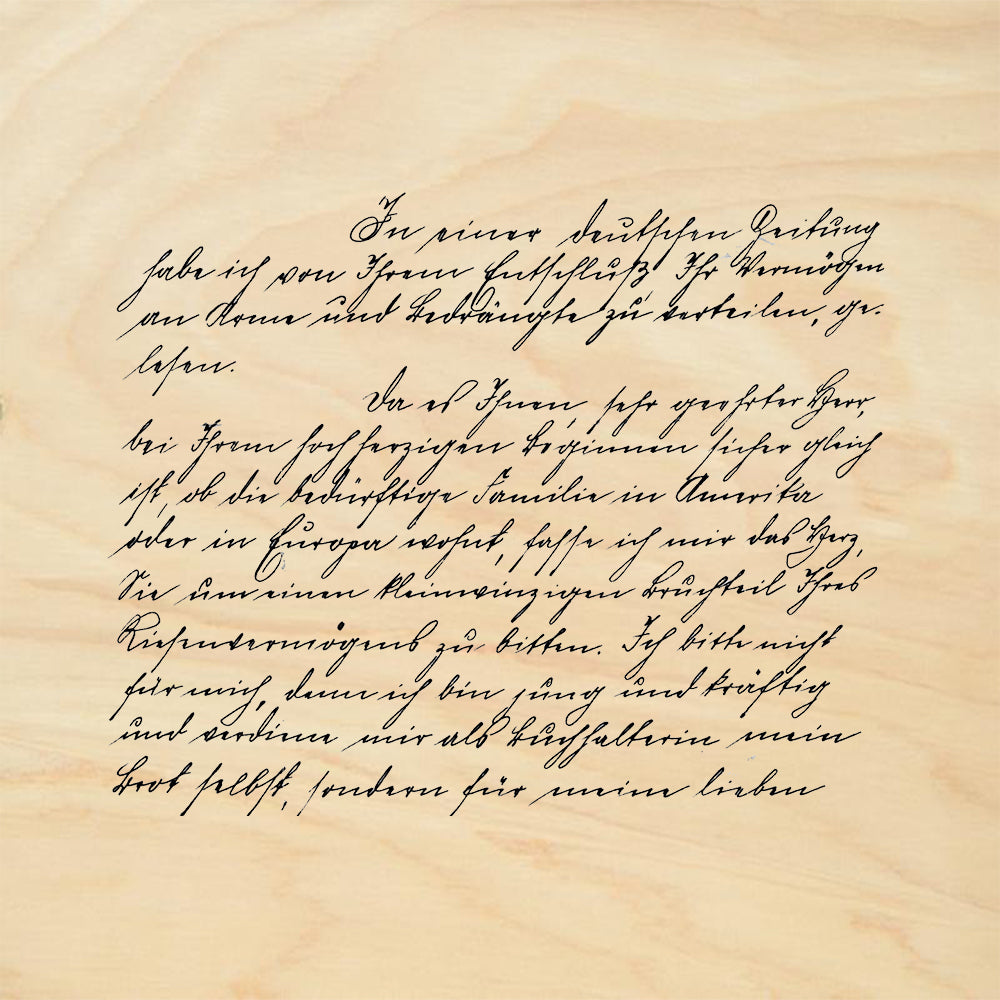 In einer deutschen Zeitung
habe ich von Ihrem Entschluß, Ihr Vermögen
an Arme und Bedrängte zu verteilen, ge-
lesen.
Da es Ihnen, sehr geehrter Herr,
bei Ihrem hochherzigen Beginnen sicher gleich
ist, ob die bedürftige Familie in Amerika
oder in Europa wohnt, fasse ich mir das Herz,
Sie um einen kleinwinzigen Bruchteil Ihres
Riesenvermögens zu bitten. Ich bitte nicht
für mich, denn ich bin jung und kräftig
und verdiene mir als Buchhalterin mein
Brot selbst, sondern für meine lieben